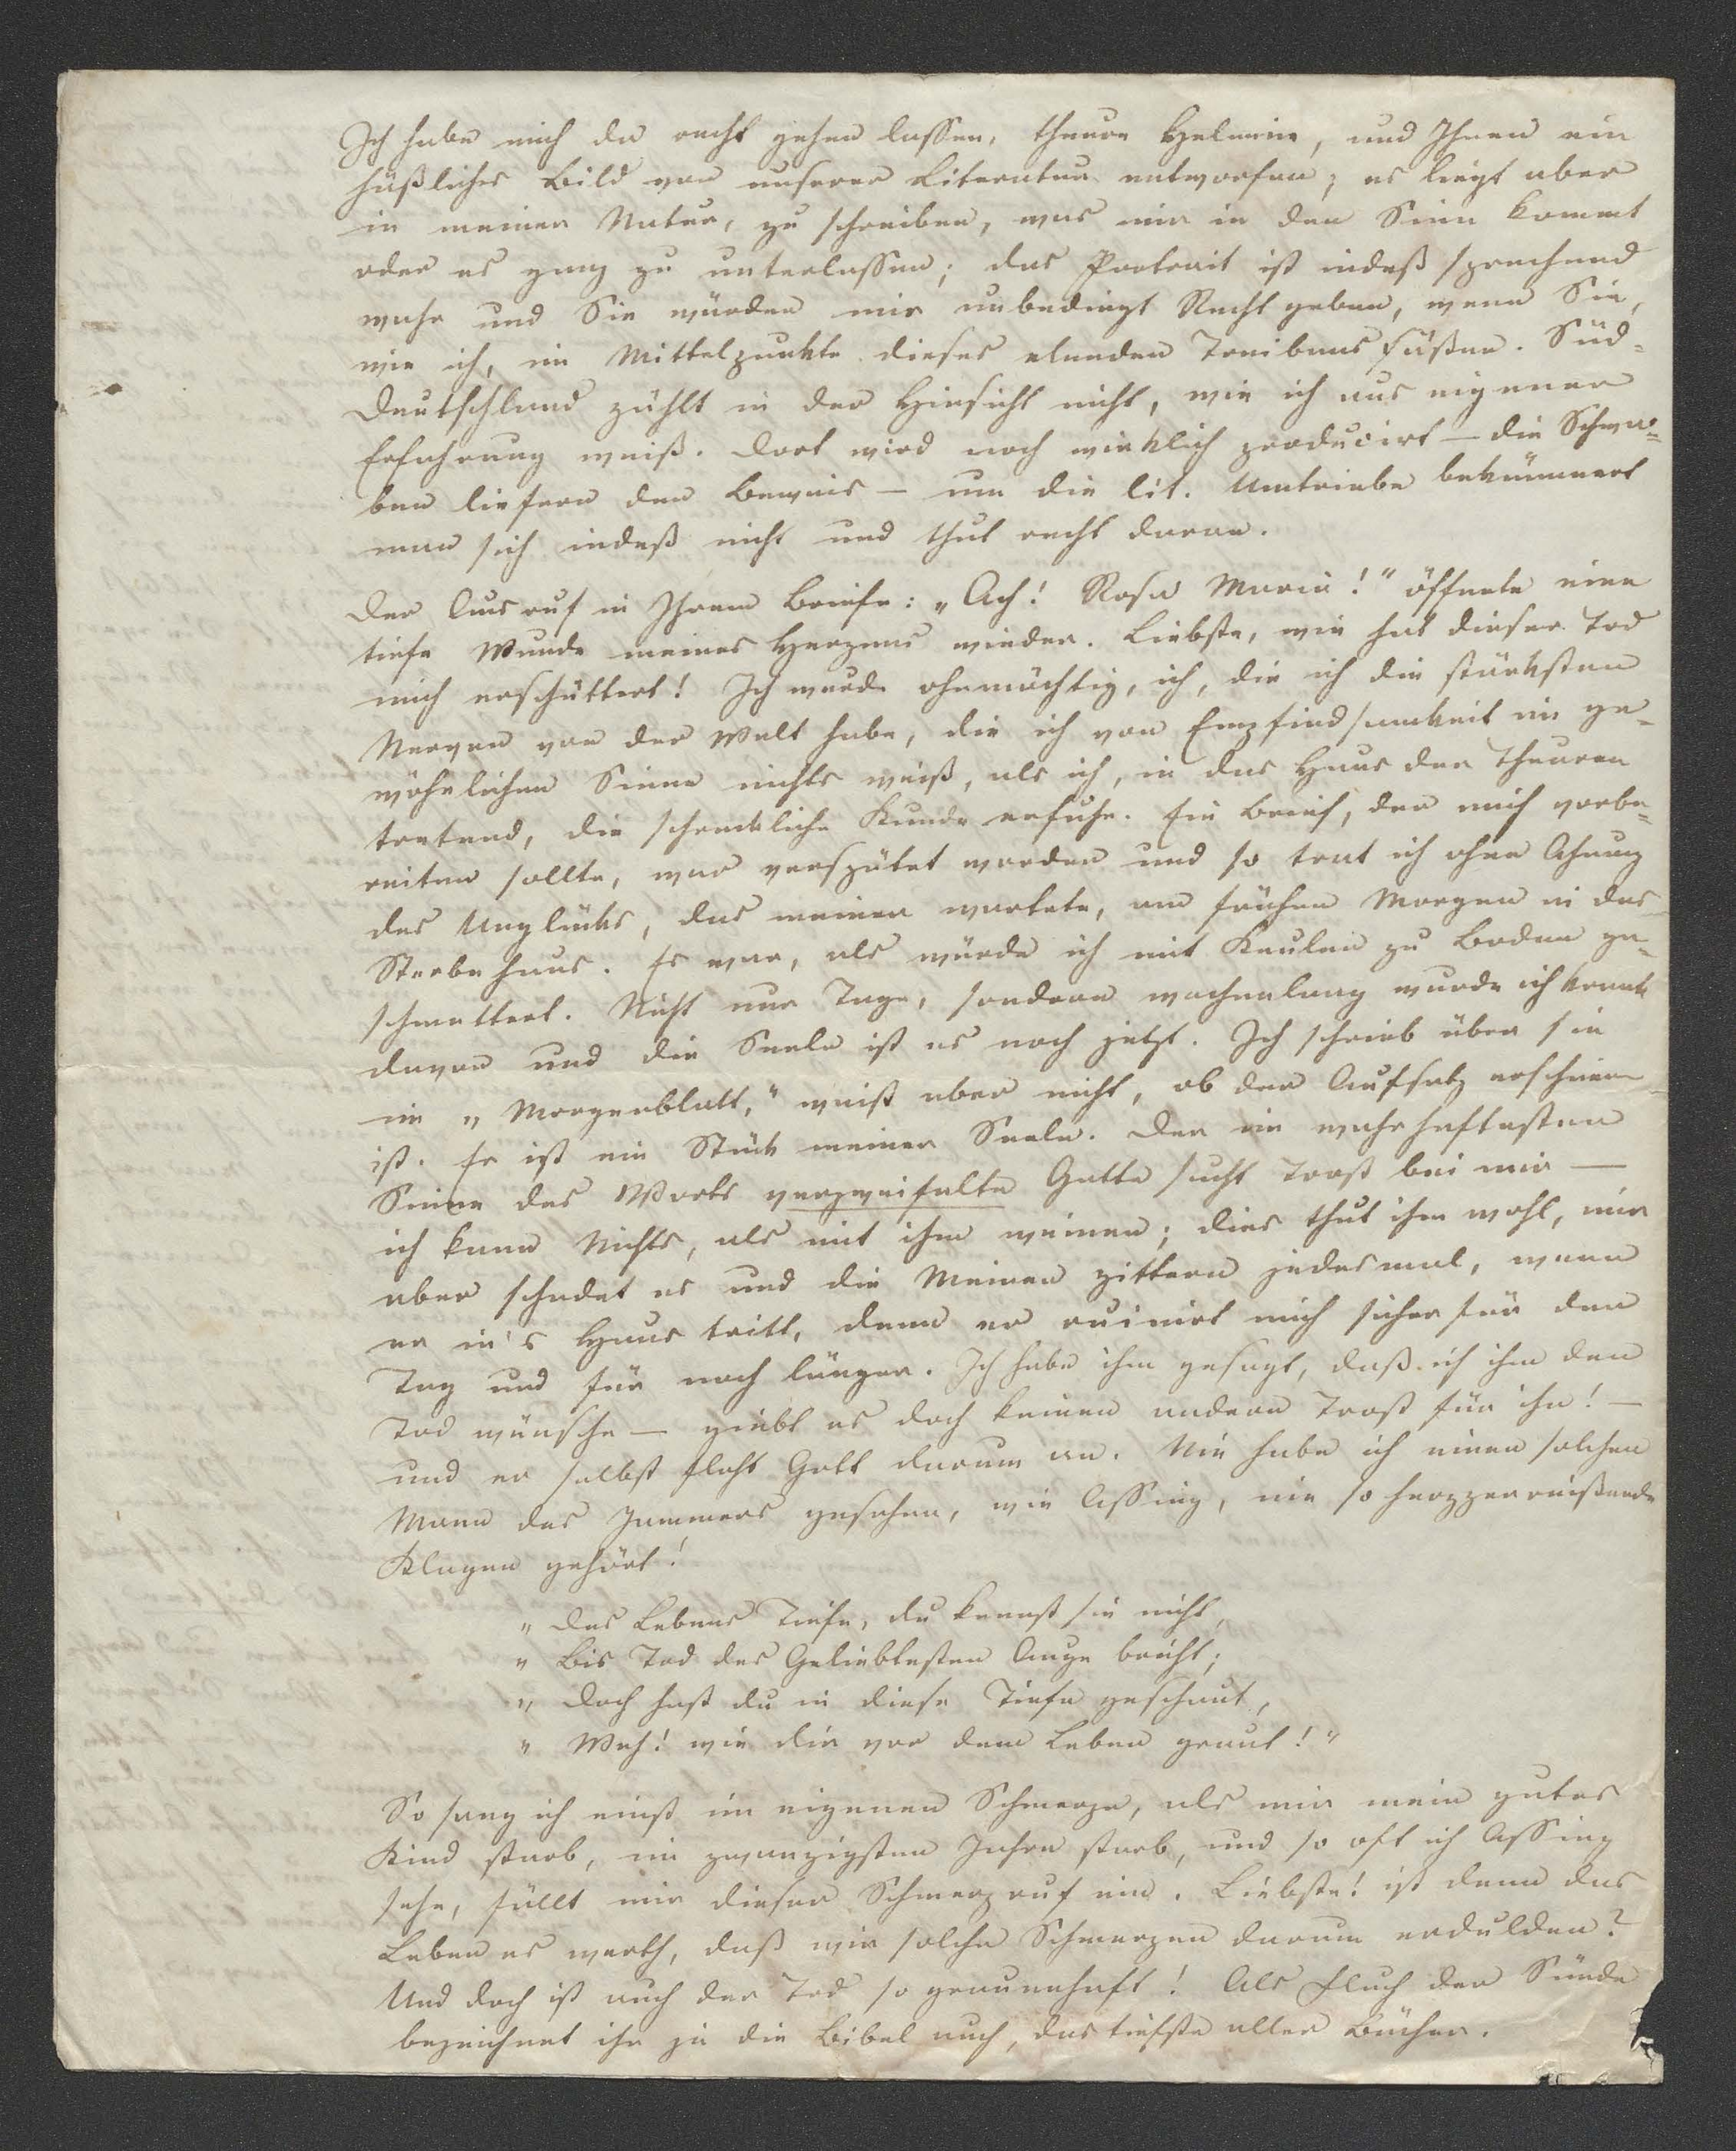 Ich habe mich da recht gehen lassen, theure Helmina, und Ihnen ein
häßliches Bild von unserer Literatur entworfen; es liegt aber
in meiner Natur, zu schreiben, was mir in den Sinn kommt
oder es ganz zu unterlassen; das Portrait ist indeß sprechend
wahr und Sie würden mir unbedingt Recht geben, wenn Sie,
wie ich, im Mittelpunkte dieses elenden Treibens säßen. Süd-
Deutschland zählt in der Hinsicht nicht, wie ich aus eigener
Erfahrung weiß. Dort wird noch wirklich producirt – die Schwa-
ben liefern den Beweis – um die lit. Umtriebe bekümmert
man sich indeß nicht und thut recht daran.
Der Ausruf in Ihrem Briefe: „Ach! Rosa Maria!" öffnete eine
tiefe Wunde meines Herzens wieder. Liebste, wie hat dieser Tod
mich erschüttert! Ich wurde ohnmächtig, ich, die ich die stärksten
Nerven von der Welt habe, die ich von Empfindsamkeit im ge-
wöhnlichen Sinne nichts weiß, als ich, in das Haus der Theuren
tretend, die schreckliche Kunde erfuhr. Ein Brief, der mich vorbe-
reiten sollte, war verspätet worden und so trat ich ohne Ahnung
des Unglücks, das meiner wartete, am frühen Morgen in das
Sterbehaus. Es war, als würde ich mit Keulen zu Boden ge-
schmettert. Nicht nur Tage, sondern wochenlang wurde ich krank
davon und die Seele ist es noch jetzt. Ich schrieb über sie
im „Morgenblatt," weiß aber nicht, ob der Aufsatz erschienen
ist. Er ist ein Stück meiner Seele. Der im wahrhaftesten
Sinne des Worts verzweifelte Gatte sucht Trost bei mir –
ich kann Nichts, als mit ihm weinen; dies thut ihm wohl, mir
aber schadet es und die Meinen zittern jedesmal, wenn
er in's Haus tritt, denn er ruinirt mich sicher für den
Tag und für noch länger. Ich habe ihm gesagt, daß ich ihm den
Tod wünsche – giebt es doch keinen andern Trost für ihn! –
und er selbst fleht Gott darum an. Nie habe ich einen solchen
Mann des Jammers gesehen, wie Assing, nie so herzzerreißende
Klagen gehört!
„Des Lebens Tiefe, du kennst sie nicht,
„Bis Tod des Geliebtesten Auge bricht;
„Doch hast du in diese Tiefe geschaut,
„Weh! wie dir vor dem Leben graut!"
So sang ich einst im eigenen Schmerze, als mir mein gutes
Kind starb, im zwanzigsten Jahre starb, und so oft ich Assing
sehe, fällt mir dieser Schmerzruf ein. Liebste! ist denn das
Leben es werth, daß wir solche Schmerzen darum erdulden?
Und doch ist auch der Tod so grauenhaft! Als Fluch der Sünde
bezeichnet ihn ja die Bibel auch, das tiefste aller Bücher.